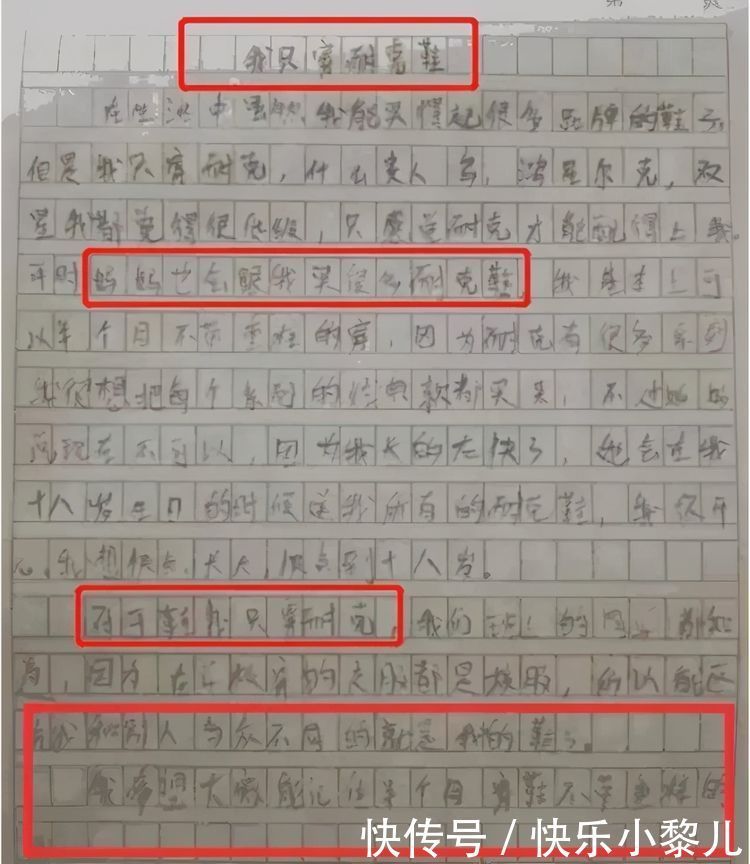 我只穿耐克鞋
在生活中虽然我能买得起很多品牌的鞋子,
但是我只穿耐克，什么贵人鸟，鸿星尔克，双
星我都觉得很低级，只感觉耐克才能配得上我。
平时妈妈也会跟我买很多耐克鞋，我基本上可
以半个月不带重样的穿，因为耐克有很多系列
我很想把每个系列的经典款都买来，不过妈妈
说现在不可以，因为我长的太快了，她会在我
十八岁生日的时候送我所有的耐克鞋，我很开
心，我想快点长大，快点到十八岁。
对于鞋我只穿耐克，我们班上的同 都知
，因为在学校穿的衣服都是校服，所以能区
我和别人与众不同的就是我的鞋子。
我希望大 能记住半个月穿鞋不带重样的
快传号 / 快乐小黎儿